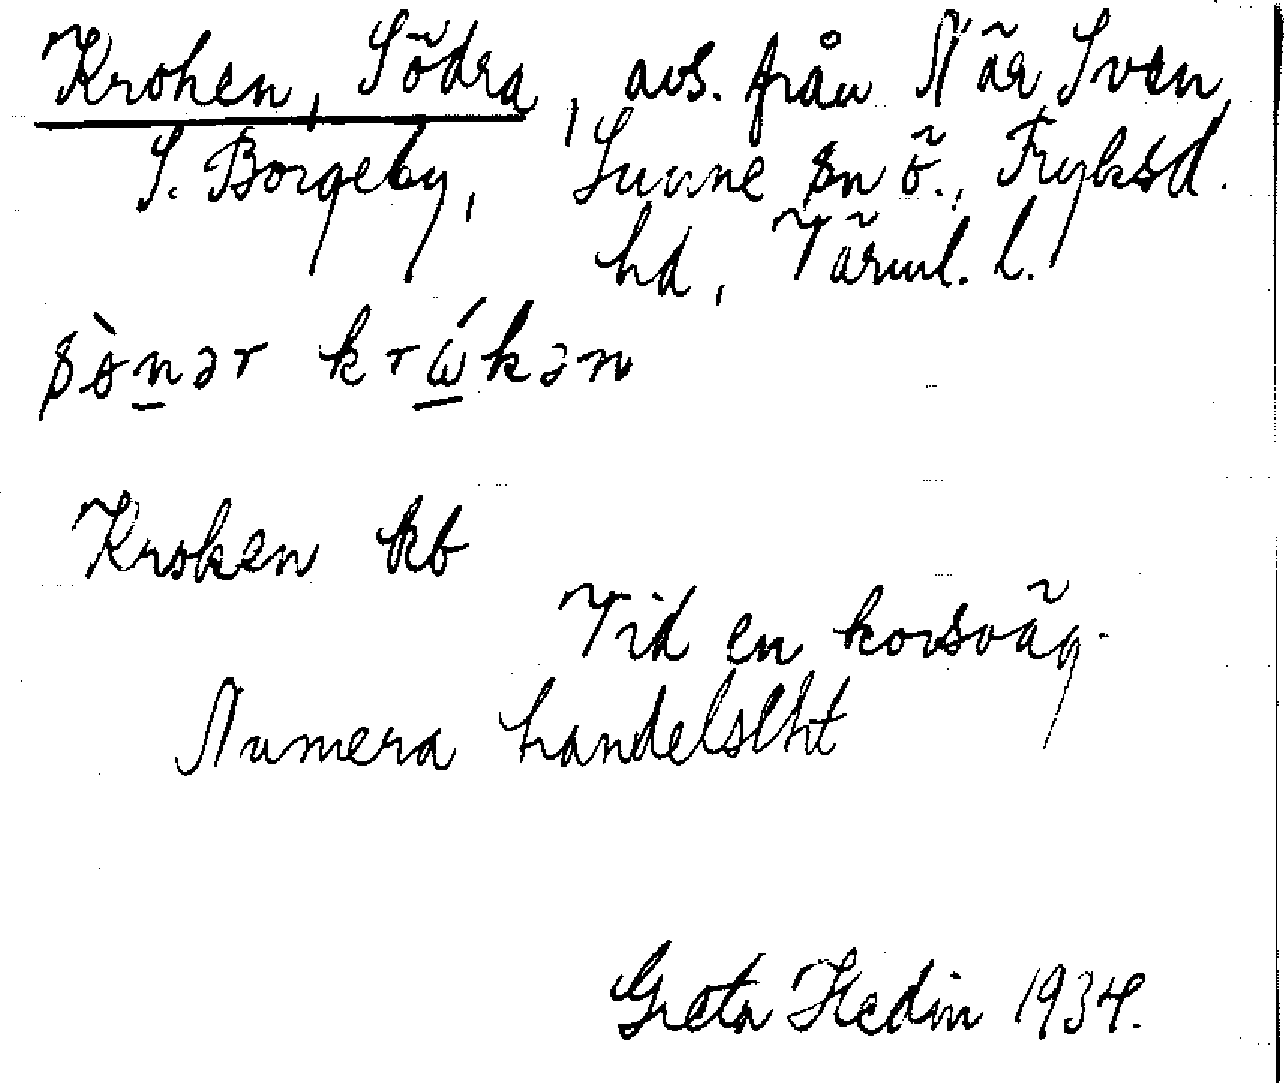 Kroken, Södra, avs. från När Sven,
S. Borgeby, Sunne sn ö., Fryksd.
hd, Värml. l.
sò̀n̲ər krώ̲kən
Kroken kb
Vid en korsväg.
Numera handelslht
Greta Hedin 1934.